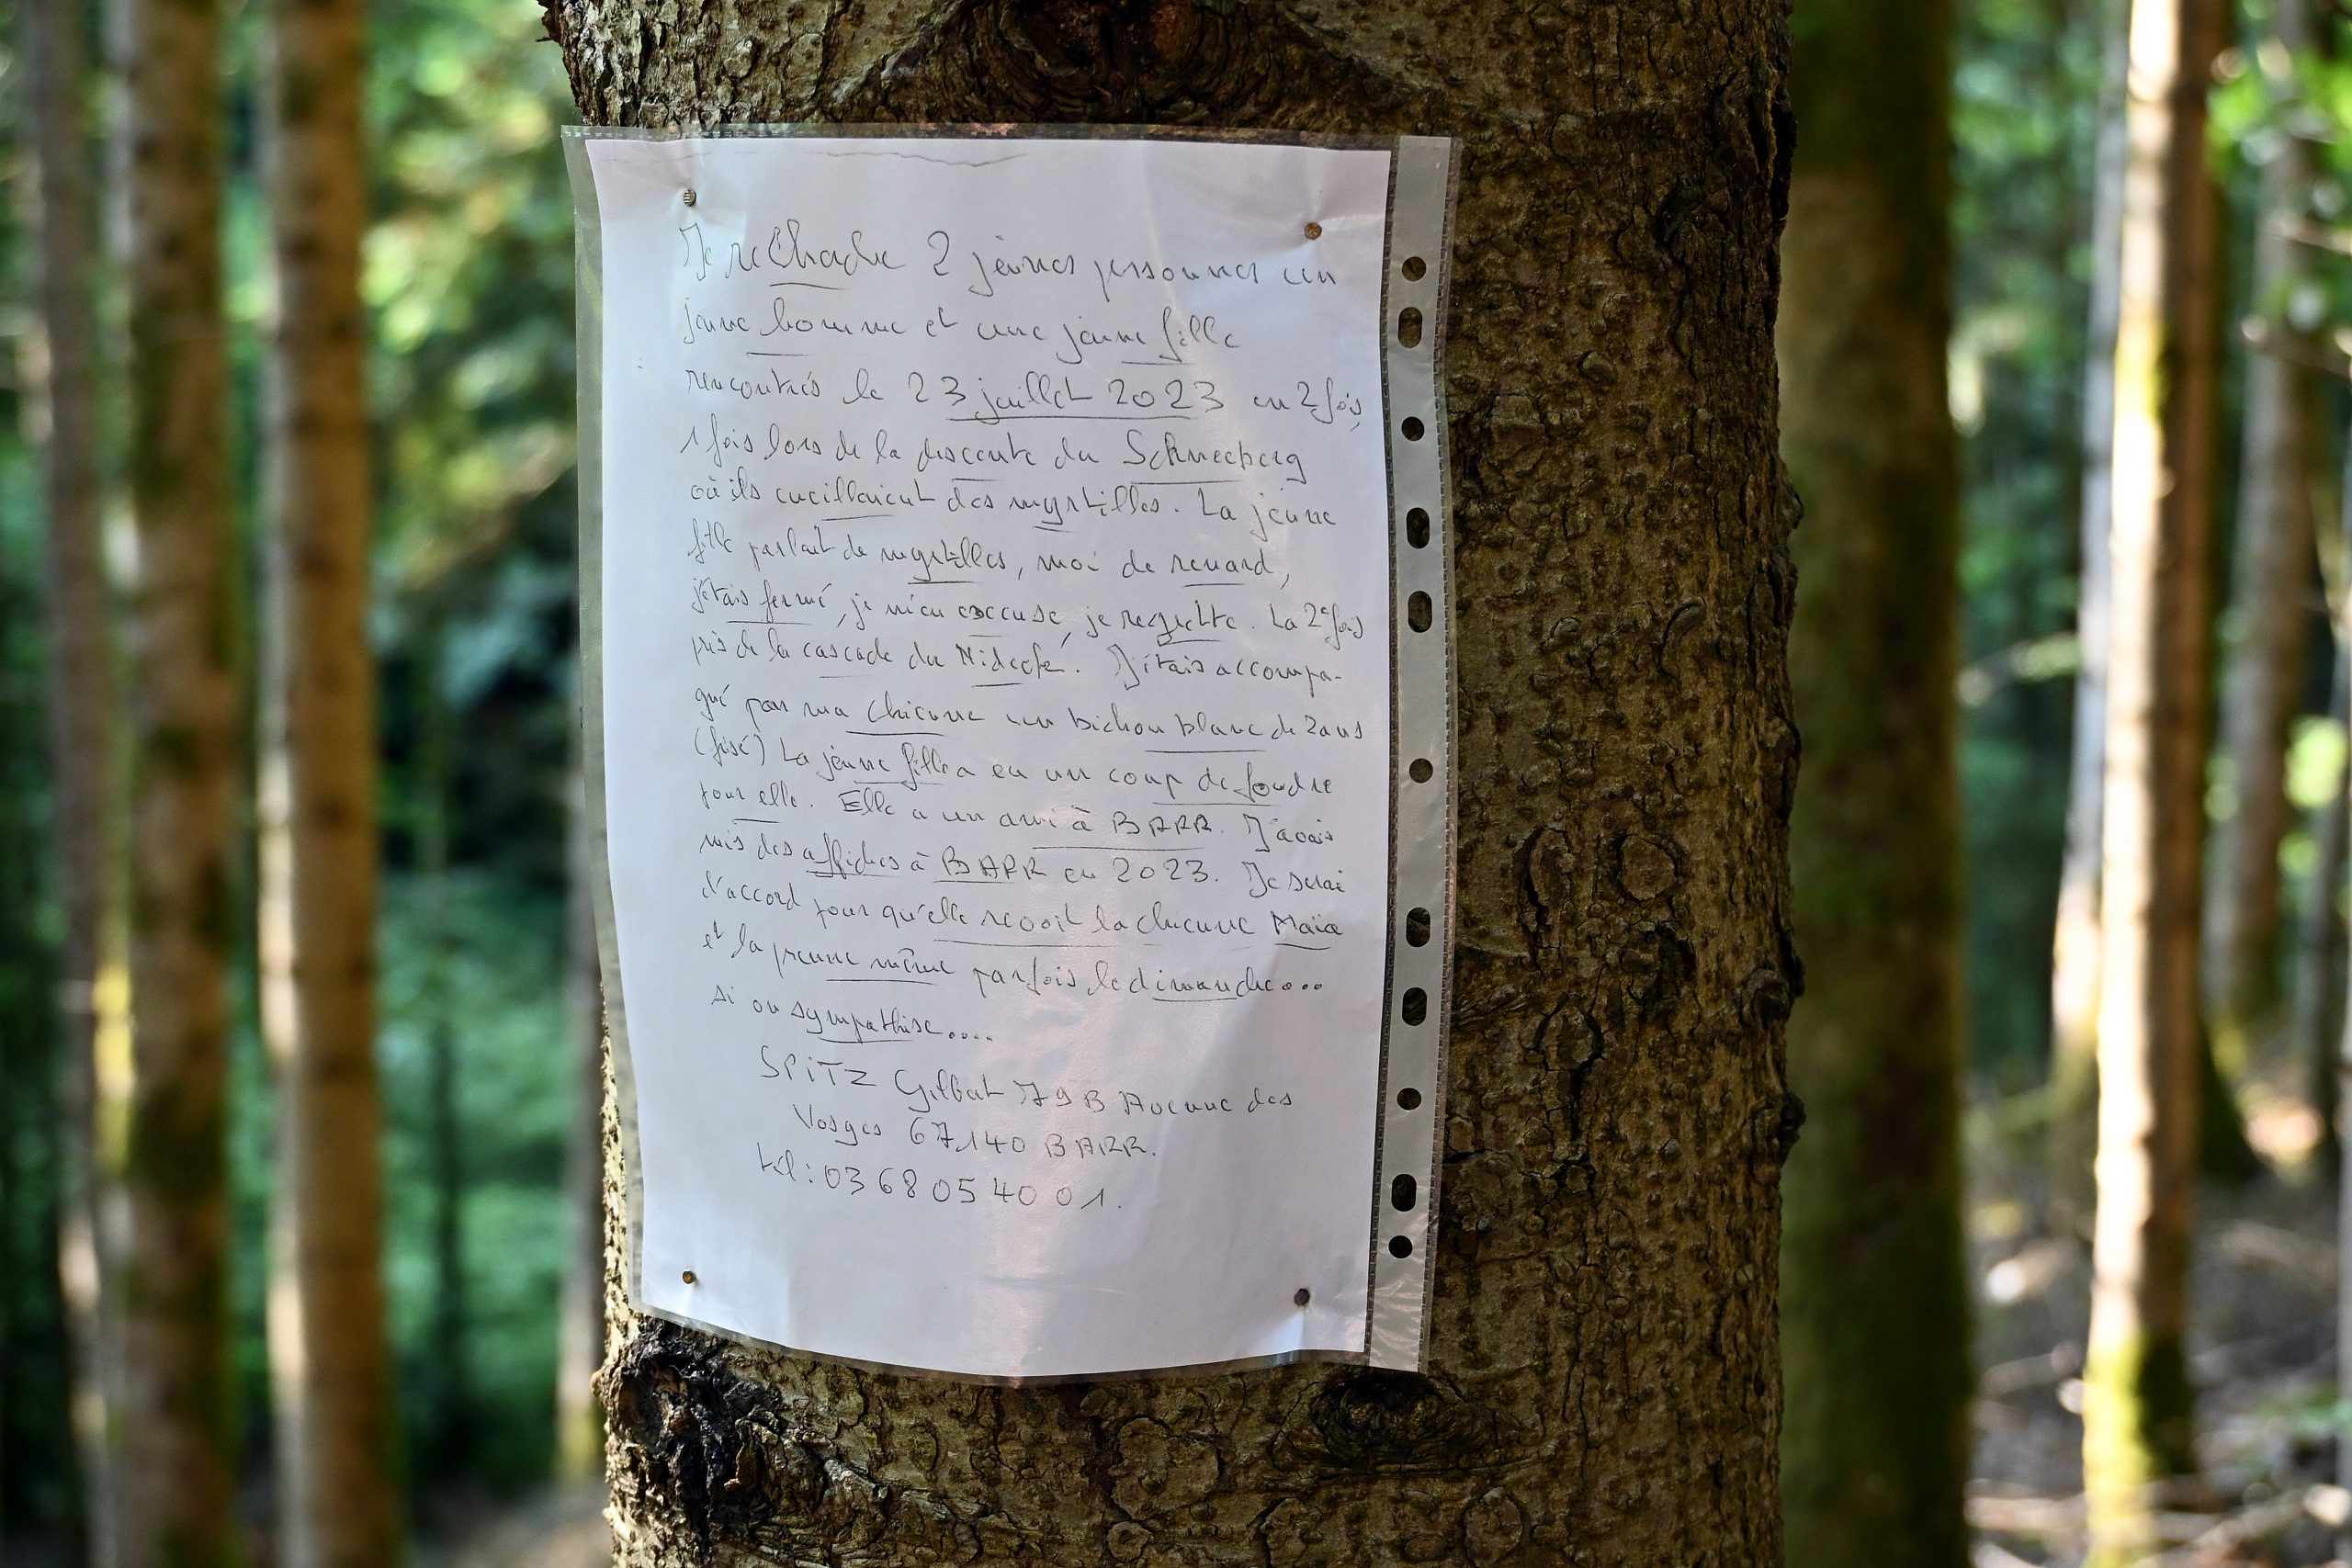 Je reChache 2 jeunes personnes un
jeune homme et une jeune fille
rencontrés le 23 juillet 2023 en 2 fois,
1 fois lors de la descente du Schneeberg
où ils cueillaient des myrtilles. La jeune
fille parlait de myrtilles, moi de renard,
j'étais fermé, je m'en excuse, je regrette. La 2e fois
près de la cascade du Nideck. J'étais accompa-
gné par ma chienne un bichon blanc de 2 ans
(fisé) La jeune fille a eu un coup de foudre
pour elle. Elle a un ami à BARR. J'avais
mis des affiches à BARR en 2023. Je serai
d'accord pour qu'elle reçoit la chienne Maïa
et la prenne même parfois le dimanche...
si on sympathise....
SPiTZ Gilbert 79 B Avenue des
Vosges 67140 BARR.
tél : 03 68 05 40 01.